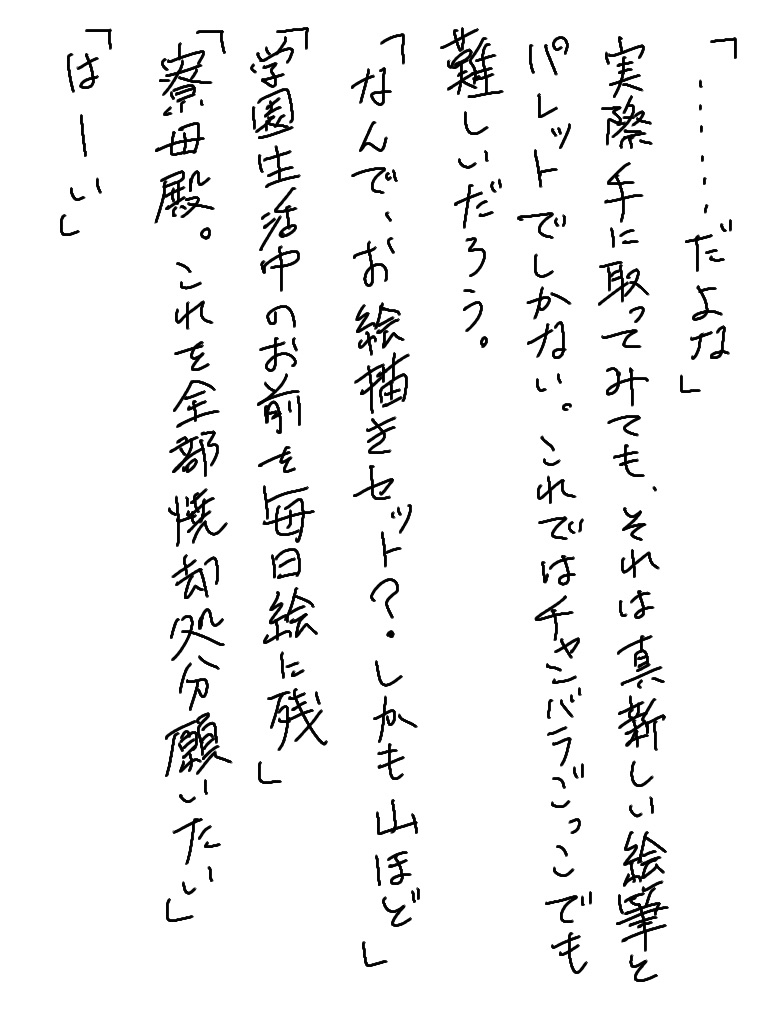 「……だよな」
実際手に取ってみても、それは真新しい絵筆と
パレットでしかない。これではチャンバラごっこでも
難しいだろう。
「なんで、お絵描きセット?・しかも山ほど」
「学園生活中のお前を毎日絵に残」
「寮母殿。これを全部焼却処分願いたい」
「はーい」